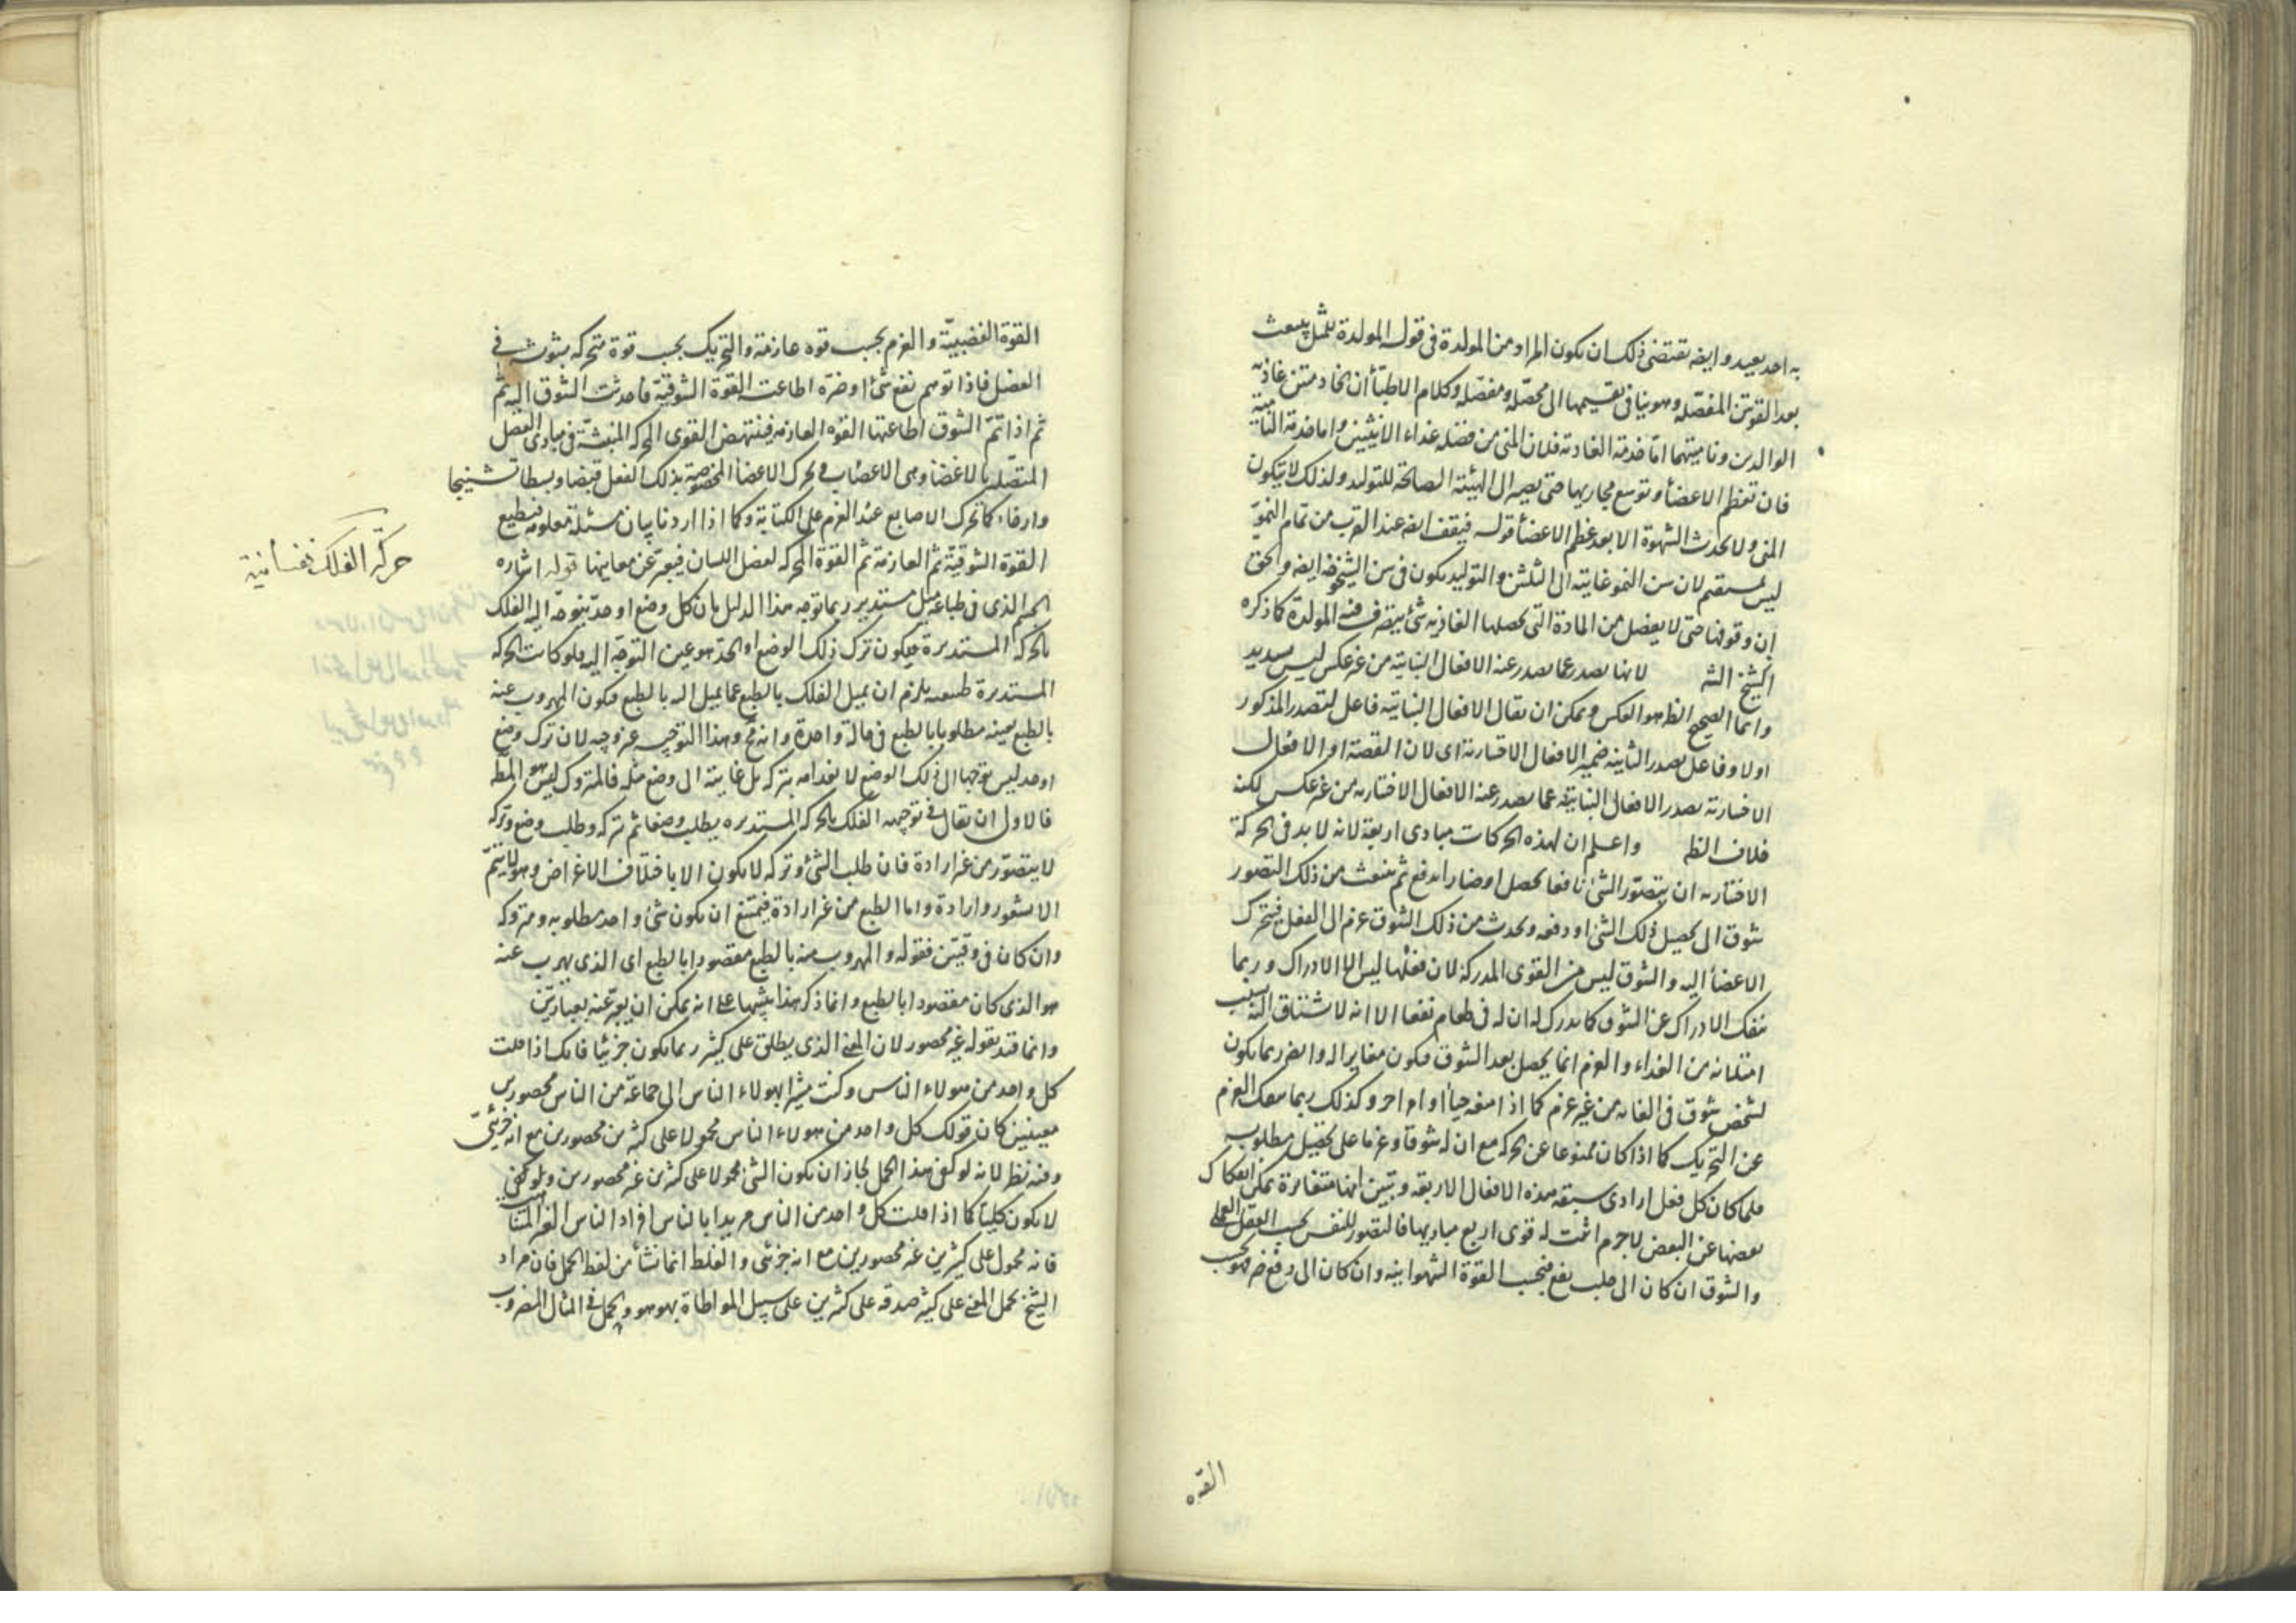 به احد بعيد وايضه تقتضى ذلك ان يكون المراد من المولدة فى قوله المولدة للمثل ينبعث
بعد القوتين المفصله وهو ينافى تقسيمها الى محصّله ومفصّله وكلام الاطبّأ ان تخادمتين غاذية
الوالدين وناميتهما امّا خدمة الغاذية فلان المنى من فضله غذاء الانثيين واما خدمة النامية
فان تعظم الاعضأ وتوسع مجاريها حتى يصير الى الهيئة الصالحة للتوليد ولذلك لا يتكون
المنى ولا يحدث الشهوة الا بعد عظم الاعضأ قوله فيقف ايضه عند القرب من تمام النموّ
ليس بمستقيم لان سن النمو غايته الى الثلثين والتوليد يكون فى سن الشيخوخة ايضه والحق
ان وقوفها حتى لا يفضل من المادة التى يحصلها الغاذيه شئ يتصرف فيه المولدة كما ذكره
الشيخ الشه لانها يصدر عما يصدر عنه الافعال النباتية من غير عكس ليس بسديد
وانما الصحيح الظ هو العكس ويمكن ان يقال الافعال النباتية فاعل لتصدر المذكور
اولا وفاعل يصدر الثانية ضمير الافعال الاختيارية اى لان القصة او الافعال
الاختيارية يصدر الافعال النباتية عما يصدر عنه الافعال الاختيارية من غير عكس لكنه
خلاف الظ واعلم ان لهذه الحركات مبادى اربعة لانه لا بد فى الحركة
الاختيارية ان يتصوّر الشئ نافعا يحصل او ضارا يدفع ثم ينبعث من ذلك التصور
شوق الى تحصيل ذلك الشئ او دفعه ويحدث من ذلك الشوق عزم الى الفعل فيتحرك
الاعضأ اليه والشوق ليس من القوى المدركة لان فعلها ليس الا الادراك وربما
ينفك الادراك عن الشوق كما يدرك له ان له فى طعام نفعا الا انه لا يشتاق اليه بسبب
امتلائه من الغذاء والعزم انما يحصل بعد الشوق فيكون مغايرا له وايضه ربما يكون
لشخص شوق فى الغاية من غير عزم كما اذا منعه حيأ او امر اخر وكذلك ربما ينفك العزم
عن التحريك كما اذا كان ممنوعا عن الحركه مع ان له شوقا وعزما على تحصيل مطلوب
فلما كان كل فعل ارادى سبقه هذه الافعال الاربعة وتبين انها متغايرة يمكن انفكاك
بعضها عن البعض لاجرم اثبت له قوى اربع مباديها فالتصور للنفس بحسب العقل العملى
والشوق ان كان الى طلب نفع فبحسب القوة الشهوانيه وان كان الى دفع ضر فبحسب
القوه
القوة الغضبيّة والعزم بحسب قوه عازمة والتحريك بحسب قوة متحركه مبثوث فى
العضل فاذا توهم نفع شئ او ضرّه اطاعت القوة الشوقية فاحدثت الشوق اليه ثم
ثم اذا تمّ الشوق اطاعتها القوه العازمه فتنتهض القوى المحركه المنبثة فى مبادى العضل
المتصّله بالاعضأ وهى الاعصاب فيحرك الاعضأ المخصوصة بذلك الفعل قبضا وبسطا تشنيجا
وارخاء كما تحرك الاصابع عند العزم على الكتابة وكما اذا اردنا بيان مسئلة معلومه فيطيع
القوة الشوقيّة ثم العازمة ثم القوة المحركه لعضل اللسان فيعبّر عن معاينها قوله اشاره
الجسم الذى فى طباعه ميل مستدير ربما توجه هذا الدليل بان كل وضع او حدّ يتوجّه اليه الفلك
بالحركه المستديرة فيكون ترك ذلك الوضع او الحدّ هو عين التوجّه اليه فلو كانت الحركه
المستديرة طبيعيه يلزم ان يميل الفلك بالطبع عما يميل اليه بالطبع فيكون المهروب عنه
بالطبع بعينه مطلوبا بالطبع فى حالة واحدة وانه مح وهذا التوجيه غير وجيه لان ترك وضع
او حد ليس توجها الى ذلك الوضع لانعدامه بتركه بل غايته الى وضع مثله فالمتروك ليس هو المط
فالاولى ان يقال فى توجيهه الفلك بالحركه المستديره يطلب وضعا ثم تركه وطلب وضع وتركه
لا يتصوّر من غير ارادة فان طلب الشئ وتركه لا يكون الا باختلاف الاغراض وهو لا يتمّ
الا بشعور وارادة واما الطبع من غير ارادة فيمتنع ان يكون شئ واحد مطلوبه ومتروكه
وان كان فى وقتين فقوله والمهروب منه بالطبع مقصودا بالطبع اى الذى يهرب عنه
هو الذى كان مقصودا بالطبع وانما ذكر هذا تنبيها على انه يمكن ان يعبّر عنه بعبارتين
وانما قيد بقوله غير محصور لان المعنى الذى يطلق على كثير ربما يكون جزئيا فانك اذا قلت
كل واحد من هولاء الناس وكنت مشيرا بهولاء الناس الى جماعة من الناس محصورين
معينين كان قولك كل واحد من هولاء الناس محمولا على كثيرين محصورين مع انه جزئىّ
وفيه نظر لانه لو كفى هذا الحمل لجاز ان يكون الشئ محمولا على كثيرين غير محصورين ولو كفى
لا يكون كليّا كما اذا قلت كل واحد من الناس مريدا بالناس افراد الناس الغير المتناهية
فانه محمول على كثيرين غير محصورين مع انه جزئى والغلط انما نشأ من لفظ الحمل فان مراد
الشيخ بحمل المعنى على كثير صدقه على كثيرين على سبيل المواطاة بهو هو والحمل فى المثال المضروب
حركة الفلك نفسانية